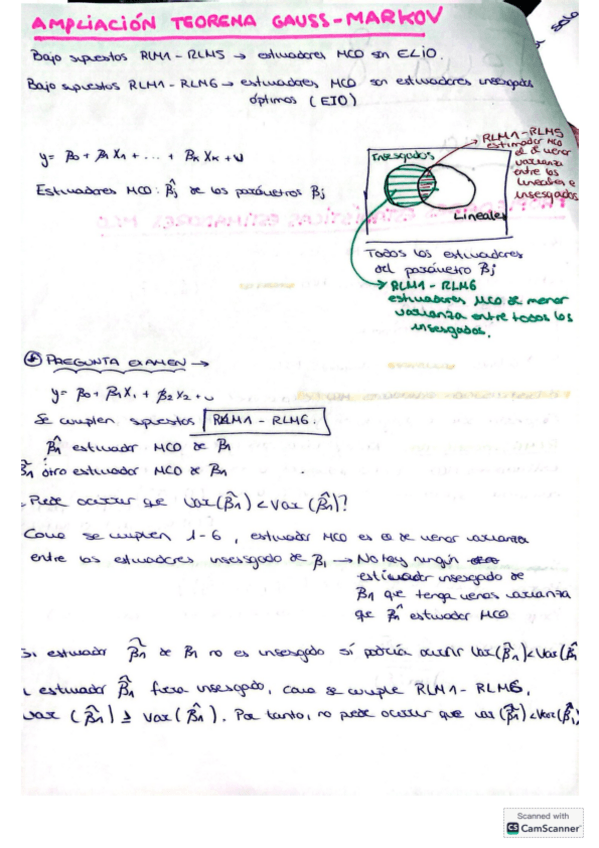 AMPLIACIÓN TEOREMA GAUSS-MARKOV
solo
Bajo supuestos RLM1 - RLM5 → estimadores MCO son ELIO.
Bajo supuestos RLM1 - RLM6 → estimadores MCO son estimadores insesgados
óptimos (EIO)
y = β0 + β1 X1 + ... + βK XK + u
Estimadores MCO: β̂j de los parámetros βj
RLM1 - RLM5
estimador MCO
el de menor
varianza
entre los
lineales e
insesgados
Insesgados
Lineales
Todos los estimadores
del parámetro βj
→ RLM1 - RLM6
estimadores MCO de menor
varianza entre todos los
insesgados.
PREGUNTA EXAMEN →
y = β0 + β1 X1 + β2 X2 + u
Se cumplen supuestos RLM1 - RLM6.
β̂1 estimador MCO de β1
β̃1 otro estimador MCO de β1
Puede ocurrir que Var(β̃1) < Var(β̂1)?
Como se cumplen 1-6, estimador MCO es el de menor varianza
entre los estimadores insesgado de β1 → No hay ningún
estimador insesgado de
β1 que tenga menos varianza
que β̂1 estimador MCO
Si estimador β̃1 de β1 no es insesgado sí podría ocurrir Var(β̃1) < Var(β̂1
estimador β̃1 fuera insesgado, como se cumple RLM1 - RLM6,
var (β̃1) ≥ Var(β̂1). Por tanto, no puede ocurrir que var(β̃1) < Var(β̂1)
Scanned with
CS CamScanner